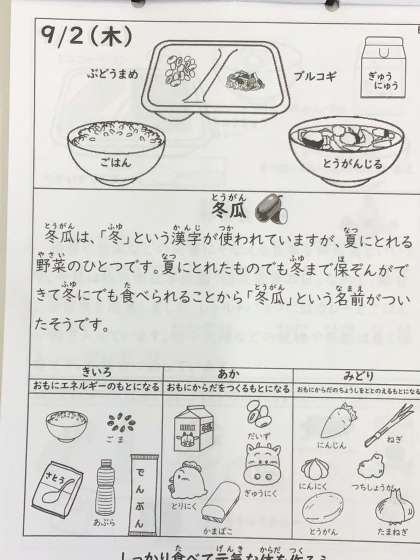 9/2(木)
ぶどうまめ
プルコギ
ぎゅう
にゅう
ごはん
とうがんじる
とうがん
冬瓜
とうがん ふゆ かんじ つか なつ
冬瓜は、「冬」という漢字が使われていますが、夏にとれる
やさい なつ ふゆ ほ
野菜のひとつです。夏にとれたものでも冬まで保ぞんがで
ふゆ た とうがん なまえ
きて冬にでも食べられることから「冬瓜」という名前がつい
たそうです。
きいろ あか みどり
おもにエネルギーのもとになる おもにからだをつくるもとになる おもにからだのちょうしをととのえるもとになる
ごま
だいず
にんじん
ねぎ
さとう
あぶら
でんぷん
とりにく
ぎゅうにく
かまぼこ
にんにく
つちしょうが
とうがん
たまねぎ
た げんき からだ つく
しっかり食べて元気な体を作ろう